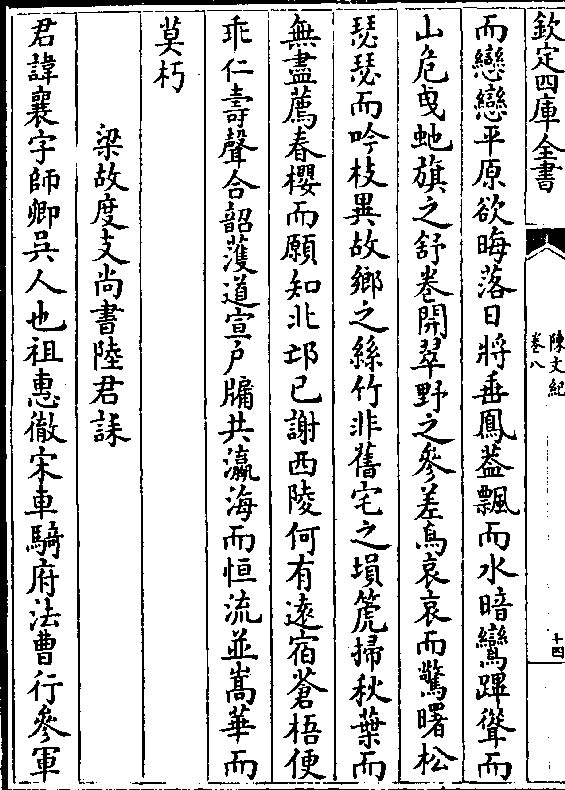 欽定四庫全書
陳文紀
卷八
十四
而戀戀平原欲晦落日將垂鳳葢飄而水暗鸞蹕聳而
山危曵虵旗之舒卷開翠野之參差鳥哀哀而驚曙松
瑟瑟而吟枝異故鄉之絲竹非舊宅之塤箎掃秋葉而
無盡薦春櫻而願知北邙已謝西陵何有遠宿蒼梧便
乖仁壽聲合韶頀道宣戸牖共瀛海而恒流並嵩華而
莫朽
梁故度支尚書陸君誄
君諱襄字師卿吳人也祖惠徹宋車騎府法曹行參軍